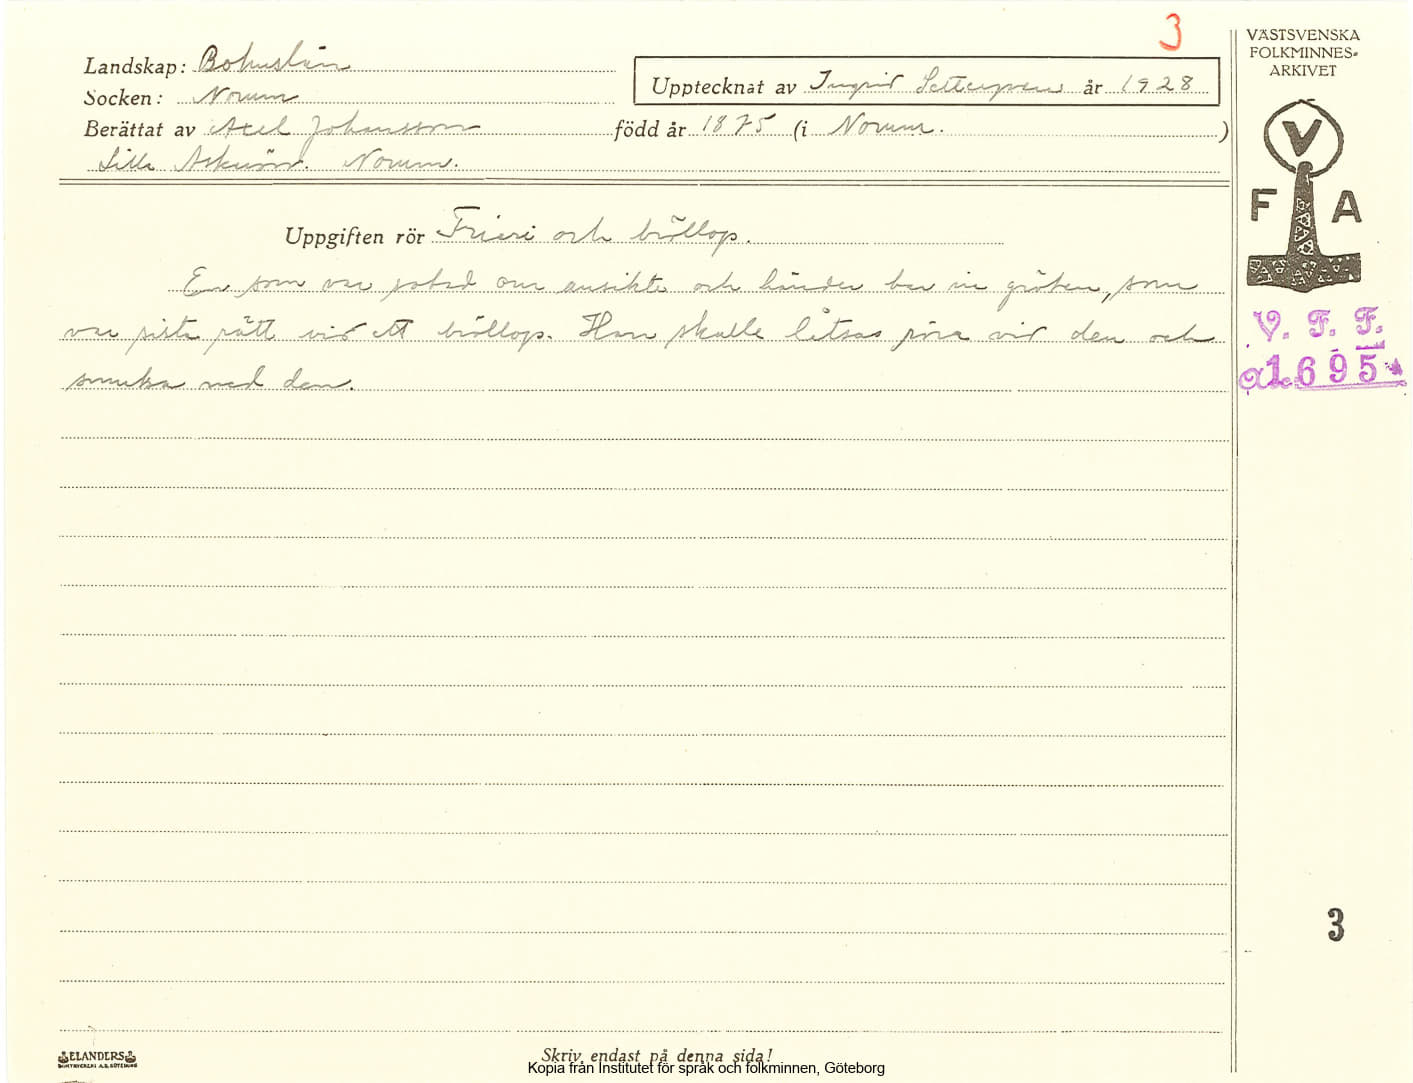 3
VÄSTSVENSKA
FOLKMINNES-
ARKIVET
Landskap: Bohuslän
Upptecknat av Ingrid år 1928
Socken: Norum
Berättat av Axel Johansson född år 1875 (i Norum. )
Lilla Askerön. Norum.
V
F A
Uppgiften rör Frieri och bröllop.
En som var sotad om ansikte och händer bar in gröten, som
var sista rätt vid ett bröllop. Han skulle låtsas röra vid den och
smutsa ned dem.
V. F. F.
1695
3
ELANDERS
BOKTRYCKERI A.B. GÖTEBORG
Skriv endast på denna sida!
Kopia från Institutet för språk och folkminnen, Göteborg